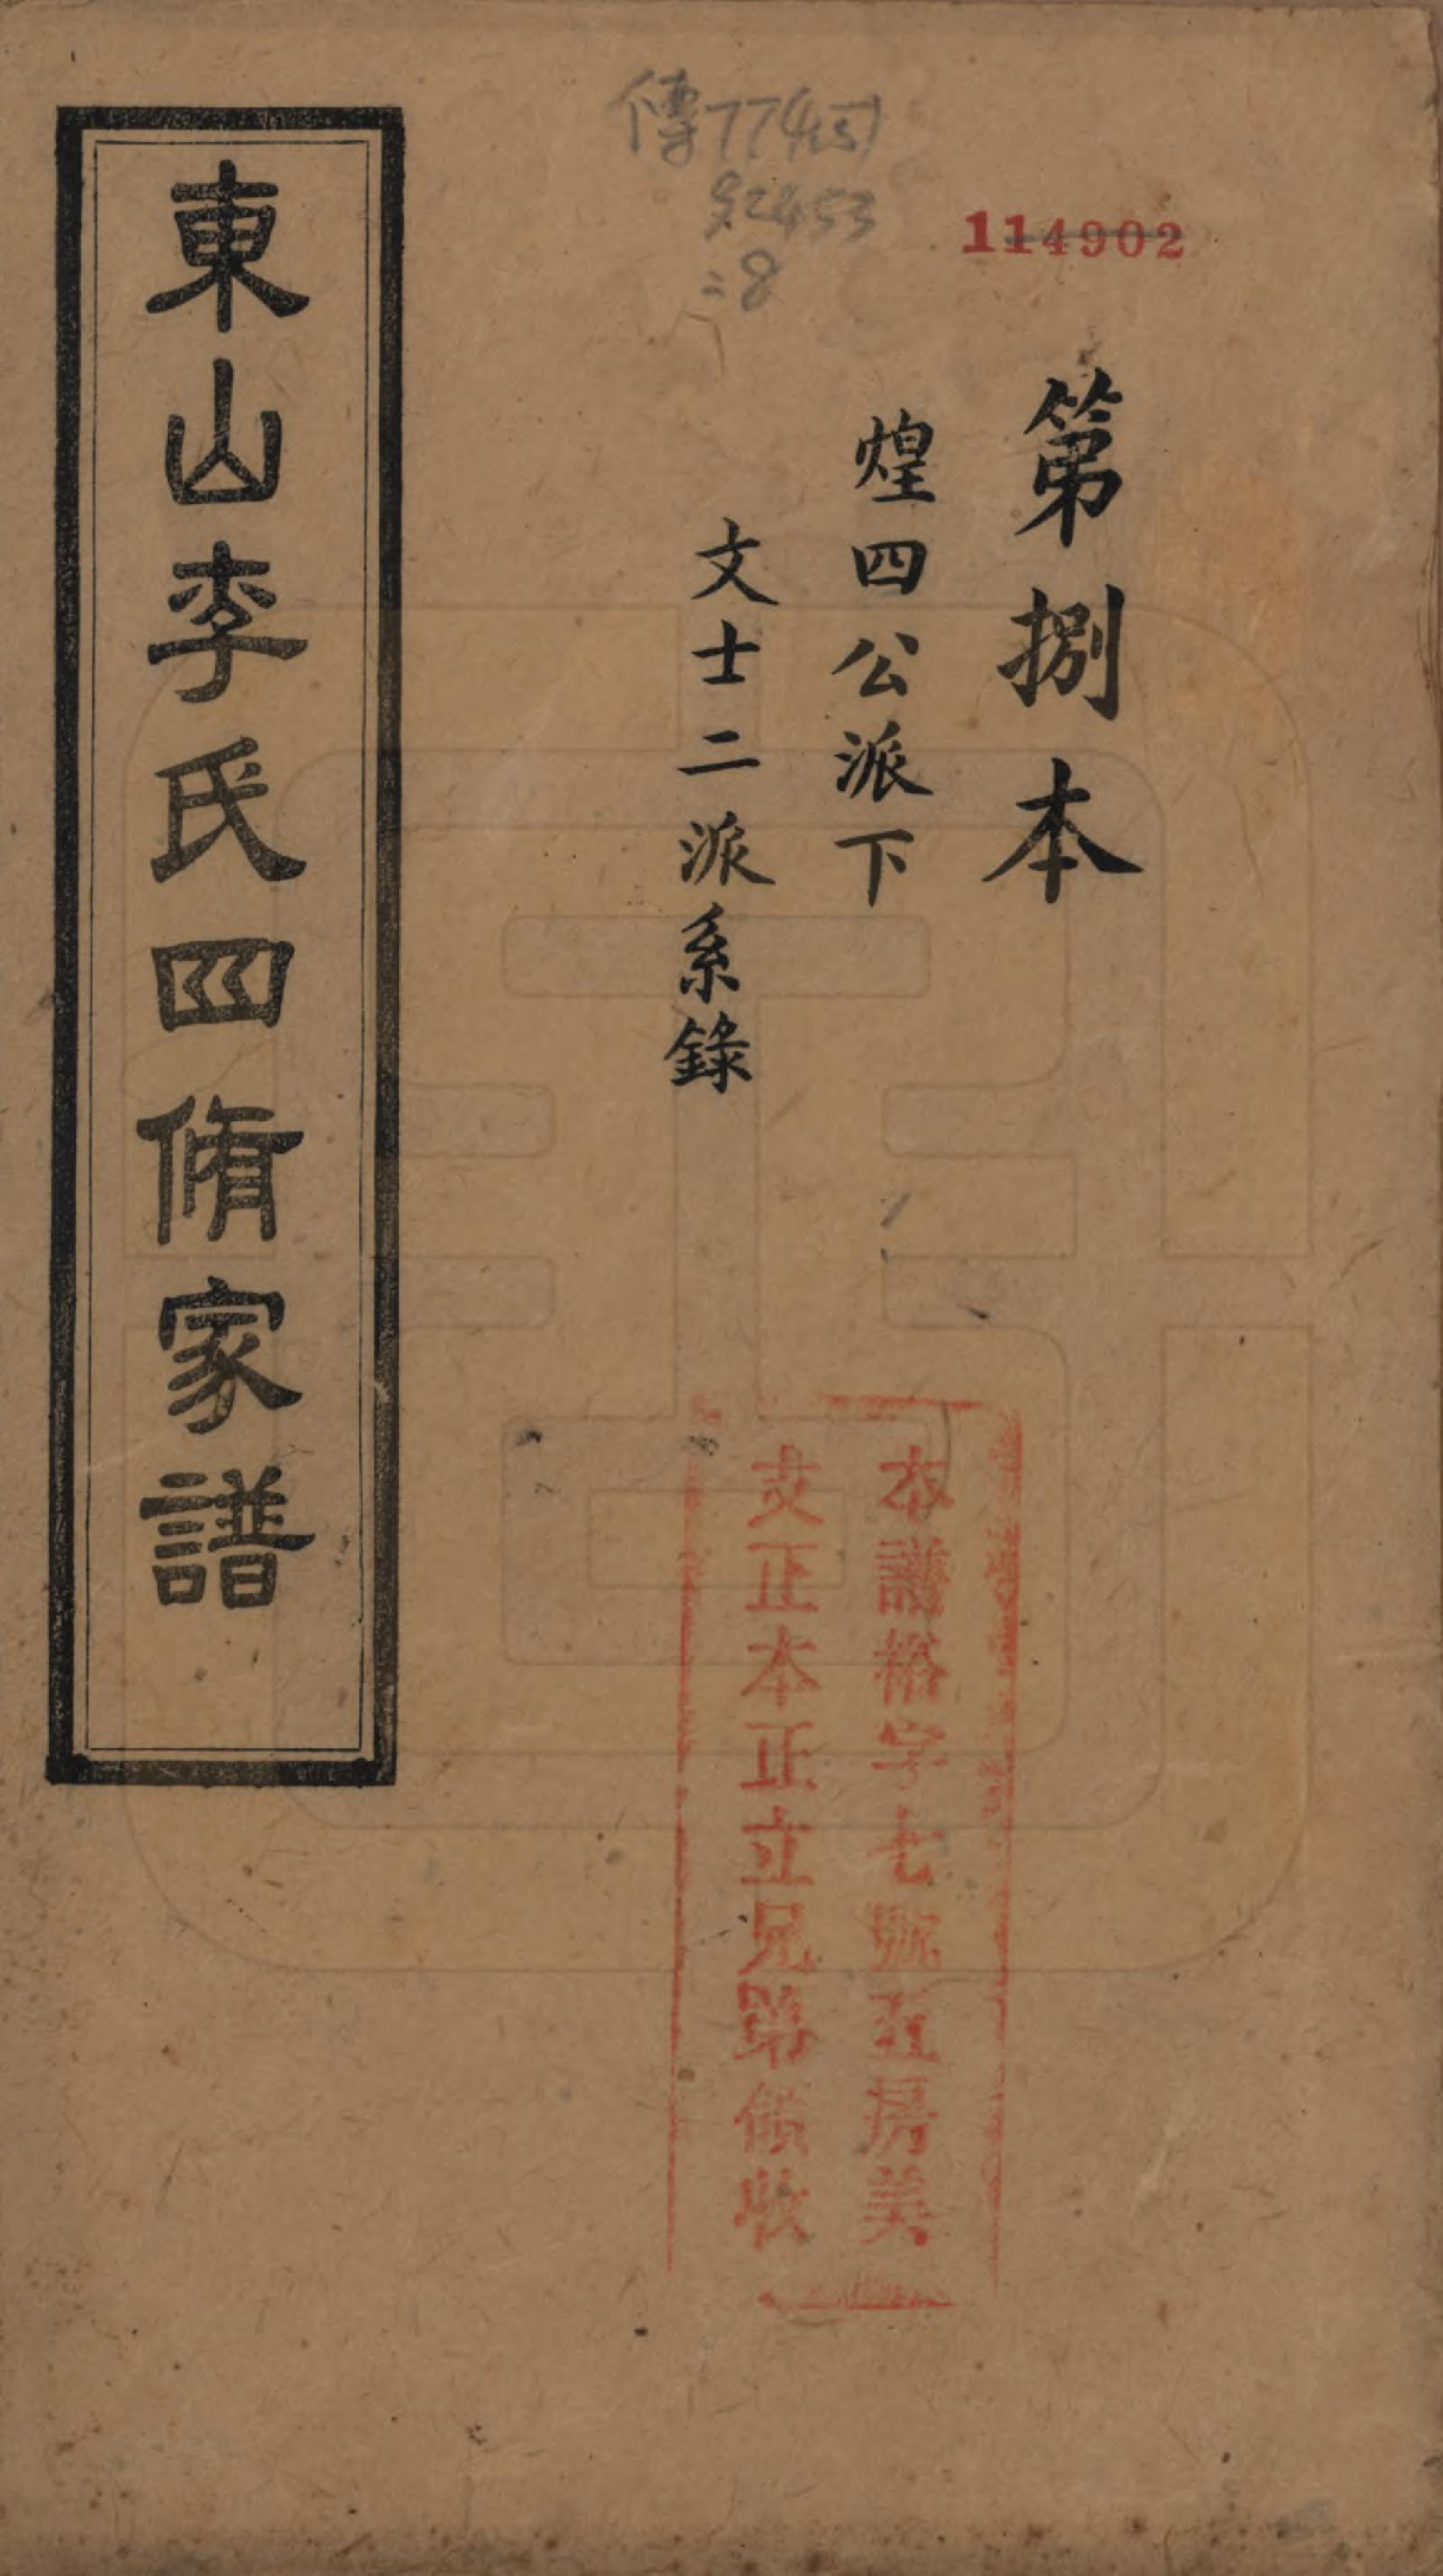 傳774
114902
第捌本
煌四公派下
文士二派系錄
東山李氏四脩家譜
本譜裕字七號五房美
支正本正立兄弟領收